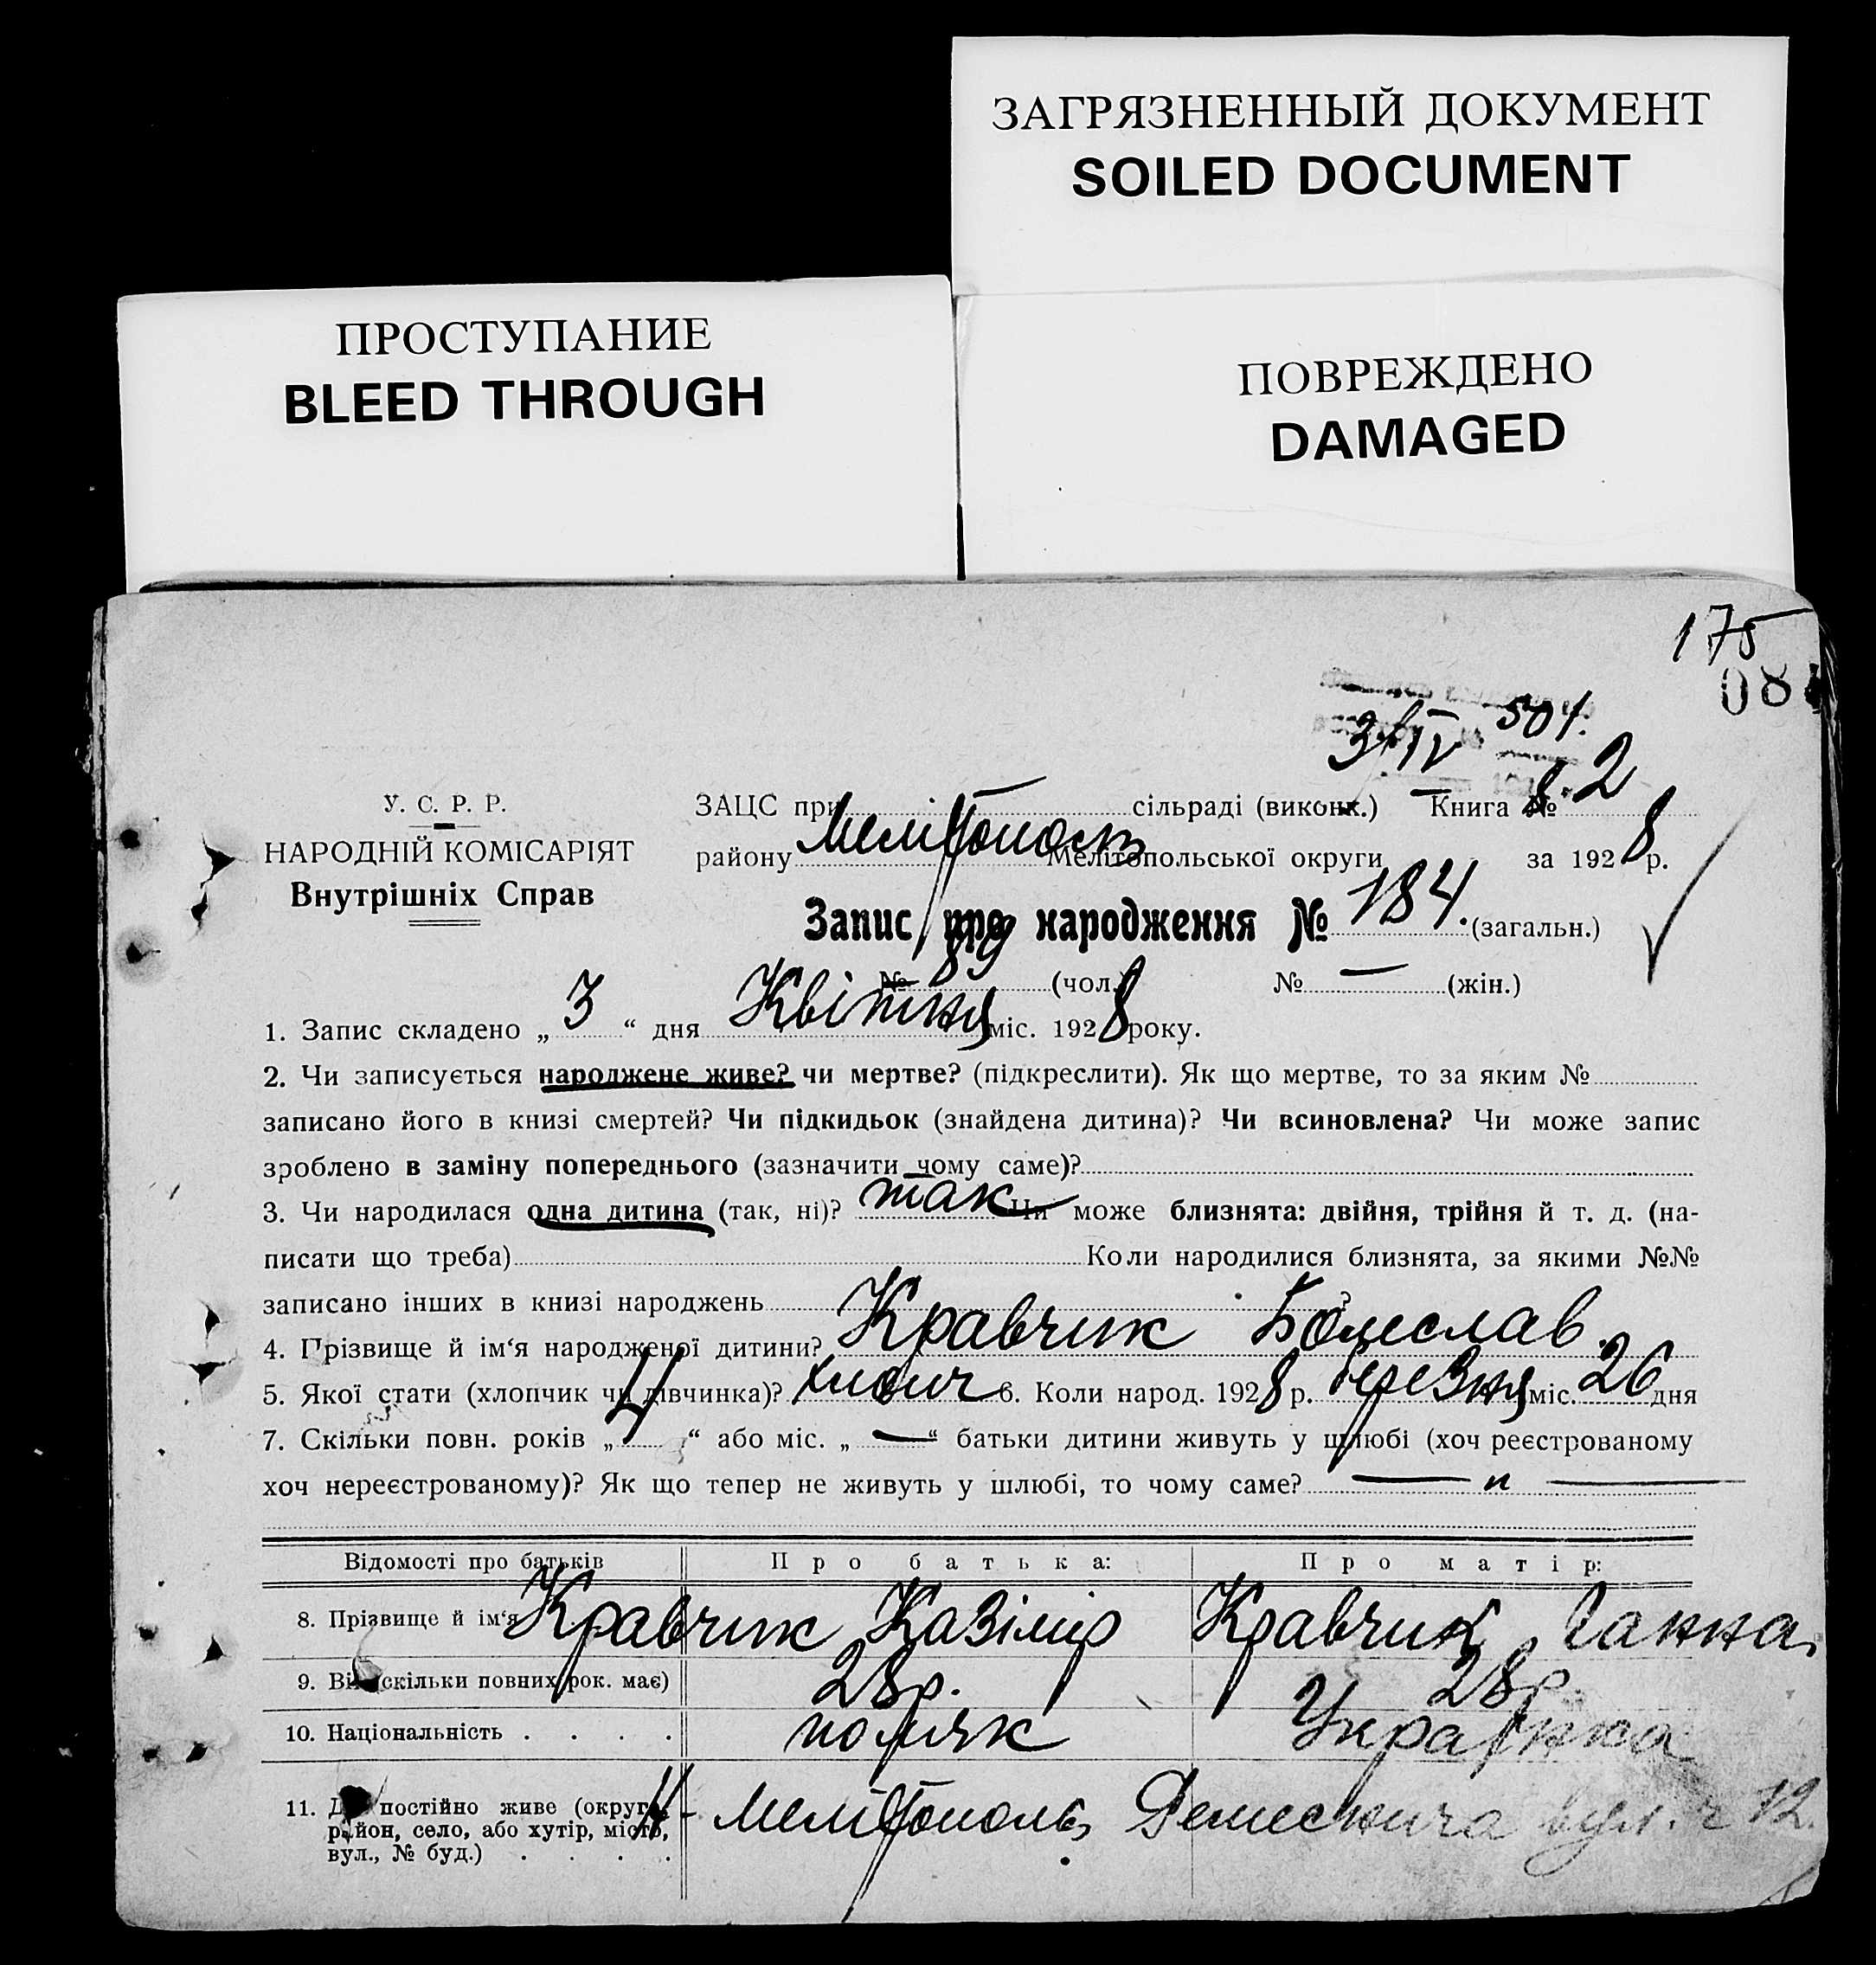 ЗАГРЯЗНЕННЫЙ ДОКУМЕНТ
SOILED DOCUMENT
ПРОСТУПАНИЕ
BLEED THROUGH
ПОВРЕЖДЕНО
DAMAGED
175
08
3/IV 501.
У. С. Р. Р.
НАРОДНІЙ КОМІСАРІЯТ
Внутрішніх Справ
ЗАЦС при сільраді (виконк.) Книга № 2
району Мелітополь Мелітопольської округи за 1928 р.
Запис про народження № 184. (загальн.)
№ 89 (чол.) № — (жін.)
1. Запис складено „ 3 “ дня Квітня міс. 1928 року.
2. Чи записується народжене живе? чи мертве? (підкреслити). Як що мертве, то за яким №
записано його в книзі смертей? Чи підкидьок (знайдена дитина)? Чи всиновлена? Чи може запис
зроблено в заміну попереднього (зазначити чому саме)?
3. Чи народилася одна дитина (так, ні)? так Чи може близнята: двійня, трійня й т. д. (на-
писати що треба) Коли народилися близнята, за якими №№
записано інших в книзі народжень ?
4. Прізвище й ім‘я народженої дитини? Кравчик Болеслав.
5. Якої стати (хлопчик чи дівчинка)? хлопч 6. Коли народ. 1928 р. березня міс. 26 дня
7. Скільки повн. років „ 4 “ або міс. „ — “ батьки дитини живуть у шлюбі (хоч реєстрованому
хоч нереєстрованому)? Як що тепер не живуть у шлюбі, то чому саме? — „ —
Відомості про батьків Про батька: Про матір:
8. Прізвище й ім‘я Кравчик Казімір Кравчик Ганна.
9. Вік (скільки повних рок. має) 28 р. 28 р.
10. Національність . . . . поляк Українка
11. Де постійно живе (округа,
район, село, або хутір, місто,
вул., № буд.) . . . .
Мелітополь вул. 12.